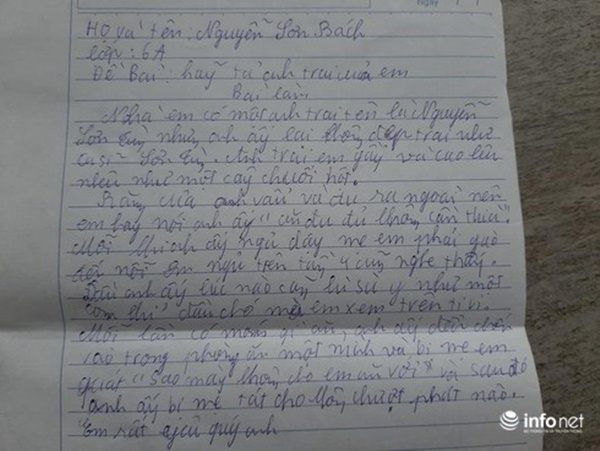 Ngày
Họ và tên: Nguyễn Sơn Bách
lớp: 6A
Đề Bài: hãy tả anh trai của em
Bài làm
Nhà em có một anh trai tên là Nguyễn
Sơn Tùng nhưng anh ấy lại không đẹp trai như
ca sĩ Sơn Tùng. Anh trai em gầy và cao lêu
nghêu như một cây chuối hột.
Răng của anh vẩu và đưa ra ngoài nên
em hay nói anh ấy "ăn đu đủ không cần thìa".
Mỗi khi anh ấy ngủ dậy mẹ em phải gào
đến nỗi em ngủ trên tầng 4 cũng nghe thấy.
Đầu anh ấy lúc nào cũng bù xù y như một
đầu chó mà em xem trên tivi.
Mỗi lần có món gì ăn, anh ấy đều
vào trong phòng ăn một mình và bị mẹ em
quát "Sao mày không cho em ăn với" và sau đó
anh ấy bị mẹ tát cho không trượt phát nào.
Em rất quý anh
infonet